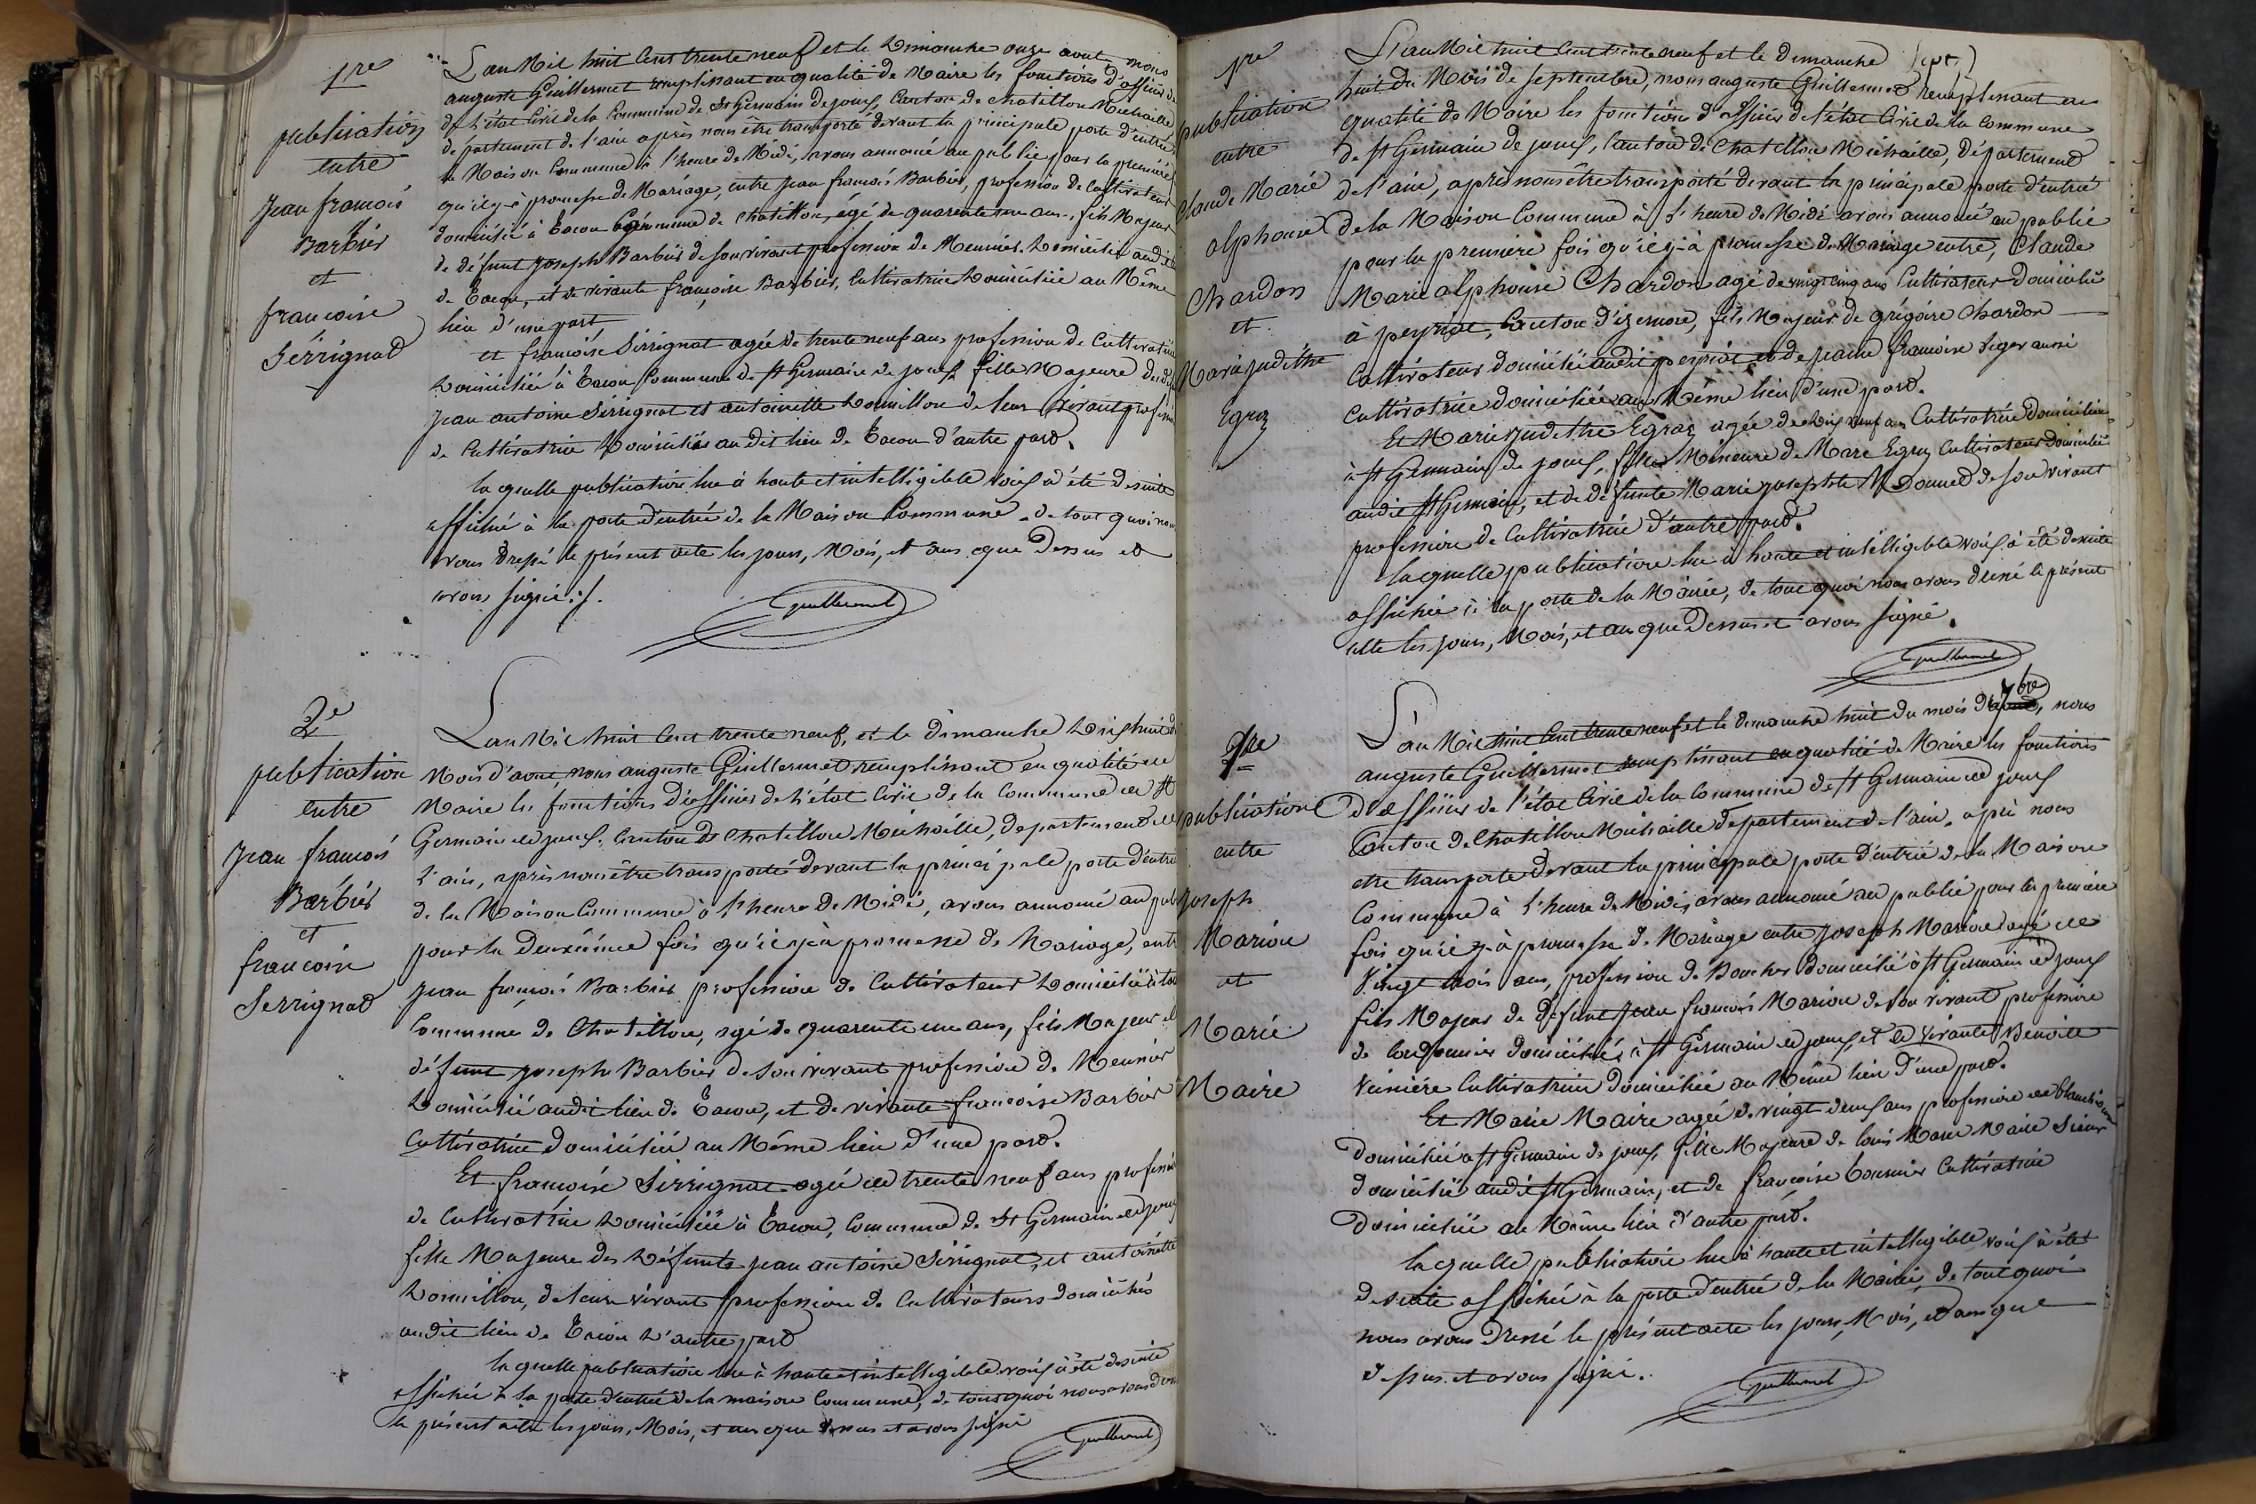 1re
publication
entre
Jean françois
Barbier
et
françoise
Serrignat
L'an Mil huit Cent trente neuf et le Dimanche onze aout nous
auguste Guillermet remplissant en qualité de Maire les fonctions d'officier de
de l'état Civil de la Commune de St Germain de joux, Canton de chatillon Michaille
département de l'ain après nous être transporté devant la principale porte d'entrée
la Maison Commune à l'heure de Midi, avons annoncé au public pour la première
qu'il y à promesse de Mariage, entre Jean françois Barbier, profession de Cultivateur
domicilié à Commune de Chatillon, agé de quarente une ans, fils Majeur
de défunt Joseph Barbier de son vivant profession de Meunier Domicilié audit
de et de vivante françoise Barbier, Cultivatrice Domiciliée au Même
lieu d'une part
et françoise Sirrignat agée de trente neuf ans profession de Cultivatrice
Domiciliée à Commune de St Germain de joux fille Majeure des
Jean antoine Sirrignat et antoinette de leur vivant
de Cultivatrice Domiciliés au dit lieu de d'autre part.
la quelle publication lue à haute et intelligible voix a été de suite
affiché à la porte d'entrée de la Maison Commune de tout quoi nous
avons dressé le présent acte les jours, Mois, et ans que Dessus et
avons signé ./.
Guillermet
2e
publication
entre
Jean françois
Barbier
et
françoise
Serrignat
L'an Mil huit Cent trente neuf, et le Dimanche Dix huit du
Mois d'aout, nous auguste Guillermet remplissant en qualité de
Maire les fonctions d'officier de l'état Civil de la Commune de St
Germain de joux, Canton de Chatillon Michaille, département de
l'ain, après nous être transporté devant la principale porte d'entrée
de la Maison Commune à l'heure de Midi, avons annoncé au
pour la Deuxième fois qu'il y à promesse de Mariage, entre
Jean françois Barbier profession de Cultivateur Domicilié à
Commune de Chatillon, agé de quarente une ans, fils Majeur
défunt Joseph Barbier de son vivant profession de Meunier
Domicilié audit lieu de et de vivante françoise Barbier
Cultivatrice domiciliée au Même lieu d'une part.
Et françoise Sirrignat agée de trente neuf ans profession
de Cultivatrice Domiciliée à Commune de St Germain de joux
fille Majeure des Défunts Jean antoine Sirrignat, et antoinette
de leur vivant profession de Cultivateurs domiciliés
au dit lieu de d'autre part
la quelle publication lue à haute et intelligible voix à été de suite
affichée à la porte d'entrée de la maison Commune, de tout quoi nous avons
le présent acte les jours, Mois, et ans que Dessus et avons signé
Guillermet
1re
publication
entre
Claude Marie
alphonse
Chardon
et
Marie judithe
Egraz
L'an Mil huit Cent trente neuf et le dimanche (sept.)
huit du Mois de septembre, nous auguste Guillermet remplissant en
qualité de Maire les fonctions d'officier de l'état Civil de la Commune
de St Germain de joux, Canton de Chatillon Michaille, Département
de l'ain, après nous être transporté devant la principale porte d'entrée
de la Maison Commune à l'heure de Midi avons annoncé au public
pour la première fois qu'il y à promesse de Mariage entre, Claude
Marie alphonse Chardon agé de vingt cinq ans Cultivateur Domicilié
à peyriat, Canton d'izernore, fils Majeur de grégoire Chardon
Cultivateur domicilié audit peyriat et de jeanne françoise aussi
Cultivatrice domiciliée au Même lieu d'une part.
Et Marie judithe Egraz agée de dix neuf ans Cultivatrice Domiciliée
à St Germain de joux, fille Mineure de Marc Egraz Cultivateur domicilié
audit St Germain, et de défunte Marie josephte de son vivant
profession de Cultivatrice d'autre part.
la quelle publication lue à haute et intelligible voix à été de suite
affichée à la porte de la Mairie, de tout quoi nous avons dressé le présent
acte les jours, Mois, et ans que Dessus et avons signé.
Guillermet
1re
publication
entre
Joseph
Marion
et
Marie
Maire
L'an Mil huit Cent trente neuf et le dimanche huit du mois de 7bre, nous
auguste Guillermet remplissant en qualité de Maire les fonctions
d'officier de l'état Civil de la Commune de St Germain de joux
Canton de Chatillon Michaille département de l'ain, après nous
etre transporté devant la principale porte d'entrée de la Maison
Commune à l'heure de Midi, avons annoncé au public pour la première
fois qu'il y à promesse de Mariage entre Joseph Marion agé de
Vingt trois ans, profession de Boucher domicilié à St Germain de joux
fils Majeur de défunt Jean françois Marion de son vivant profession
de Cordonnier domiciliés à St Germain de joux, et de vivante Benoite
Cultivatrice domiciliée au Même lieu d'une part.
Et Marie Maire agée de vingt deux ans profession de Blanchisseuse
domiciliée à St Germain de joux, fille Majeure de louis Marie Maire
domicilié audit St Germain, et de françoise Cultivatrice
domiciliée au Même lieu d'autre part.
la quelle publication lue à haute et intelligible voix à été
de suite affichée à la porte d'entrée de la Mairie, de tout quoi
nous avons dressé le présent acte les jours, Mois, et ans que
dessus et avons signé.
Guillermet